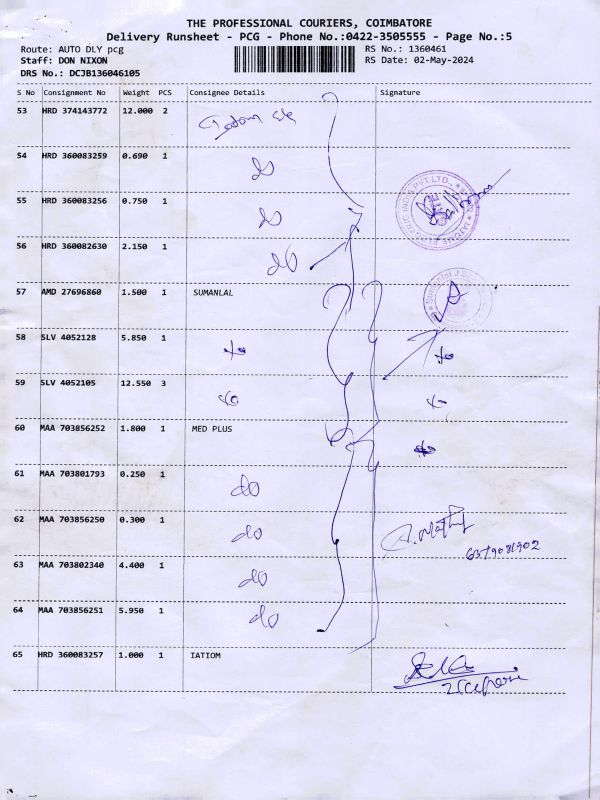 THE PROFESSIONAL COURIERS, COIMBATORE
Delivery Runsheet - PCG - Phone No.:0422-3505555 - Page No.:5
Route: AUTO DLY pcg RS No.: 1360461
Staff: DON NIXON RS Date: 02-May-2024
DRS No.: DCJB136046105
S No Consignment No Weight PCS Consignee Details Signature
53 HRD 374143772 12.000 2
54 HRD 360083259 0.690 1 do
55 HRD 360083256 0.750 1 do
56 HRD 360082630 2.150 1 do
57 AMD 27696860 1.500 1 SUMANLAL
58 SLV 4052128 5.850 1
59 SLV 4052105 12.550 3
60 MAA 703856252 1.800 1 MED PLUS
61 MAA 703801793 0.250 1 do
62 MAA 703856250 0.300 1 do
63 MAA 703802340 4.400 1 do
64 MAA 703856251 5.950 1 do
65 HRD 360083257 1.000 1 IATIOM